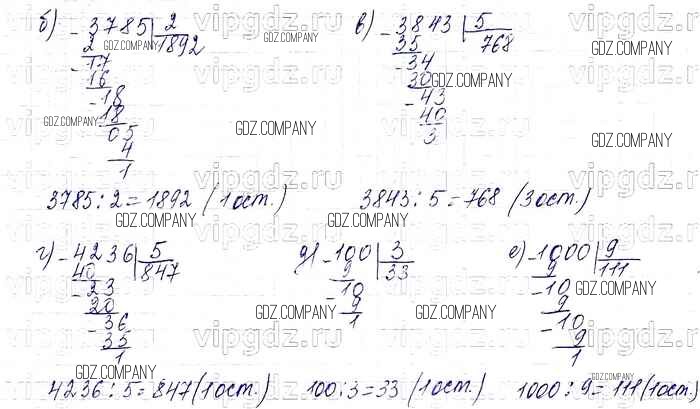 б) - 3785 | 2
2 1892
- 17
16
- 18
18
05
4
1
3785 : 2 = 1892 (1 ост.)
в) - 3843 | 5
35 768
- 34
30
- 43
40
3
3843 : 5 = 768 (3 ост.)
г) - 4236 | 5
40 847
- 23
20
- 36
35
1
4236 : 5 = 847 (1 ост.)
д) - 100 | 3
9 33
- 10
9
1
100 : 3 = 33 (1 ост.)
е) - 1000 | 9
9 111
- 10
9
- 10
9
1
1000 : 9 = 111 (1 ост.)
GDZ.COMPANY
vipgdz.ru